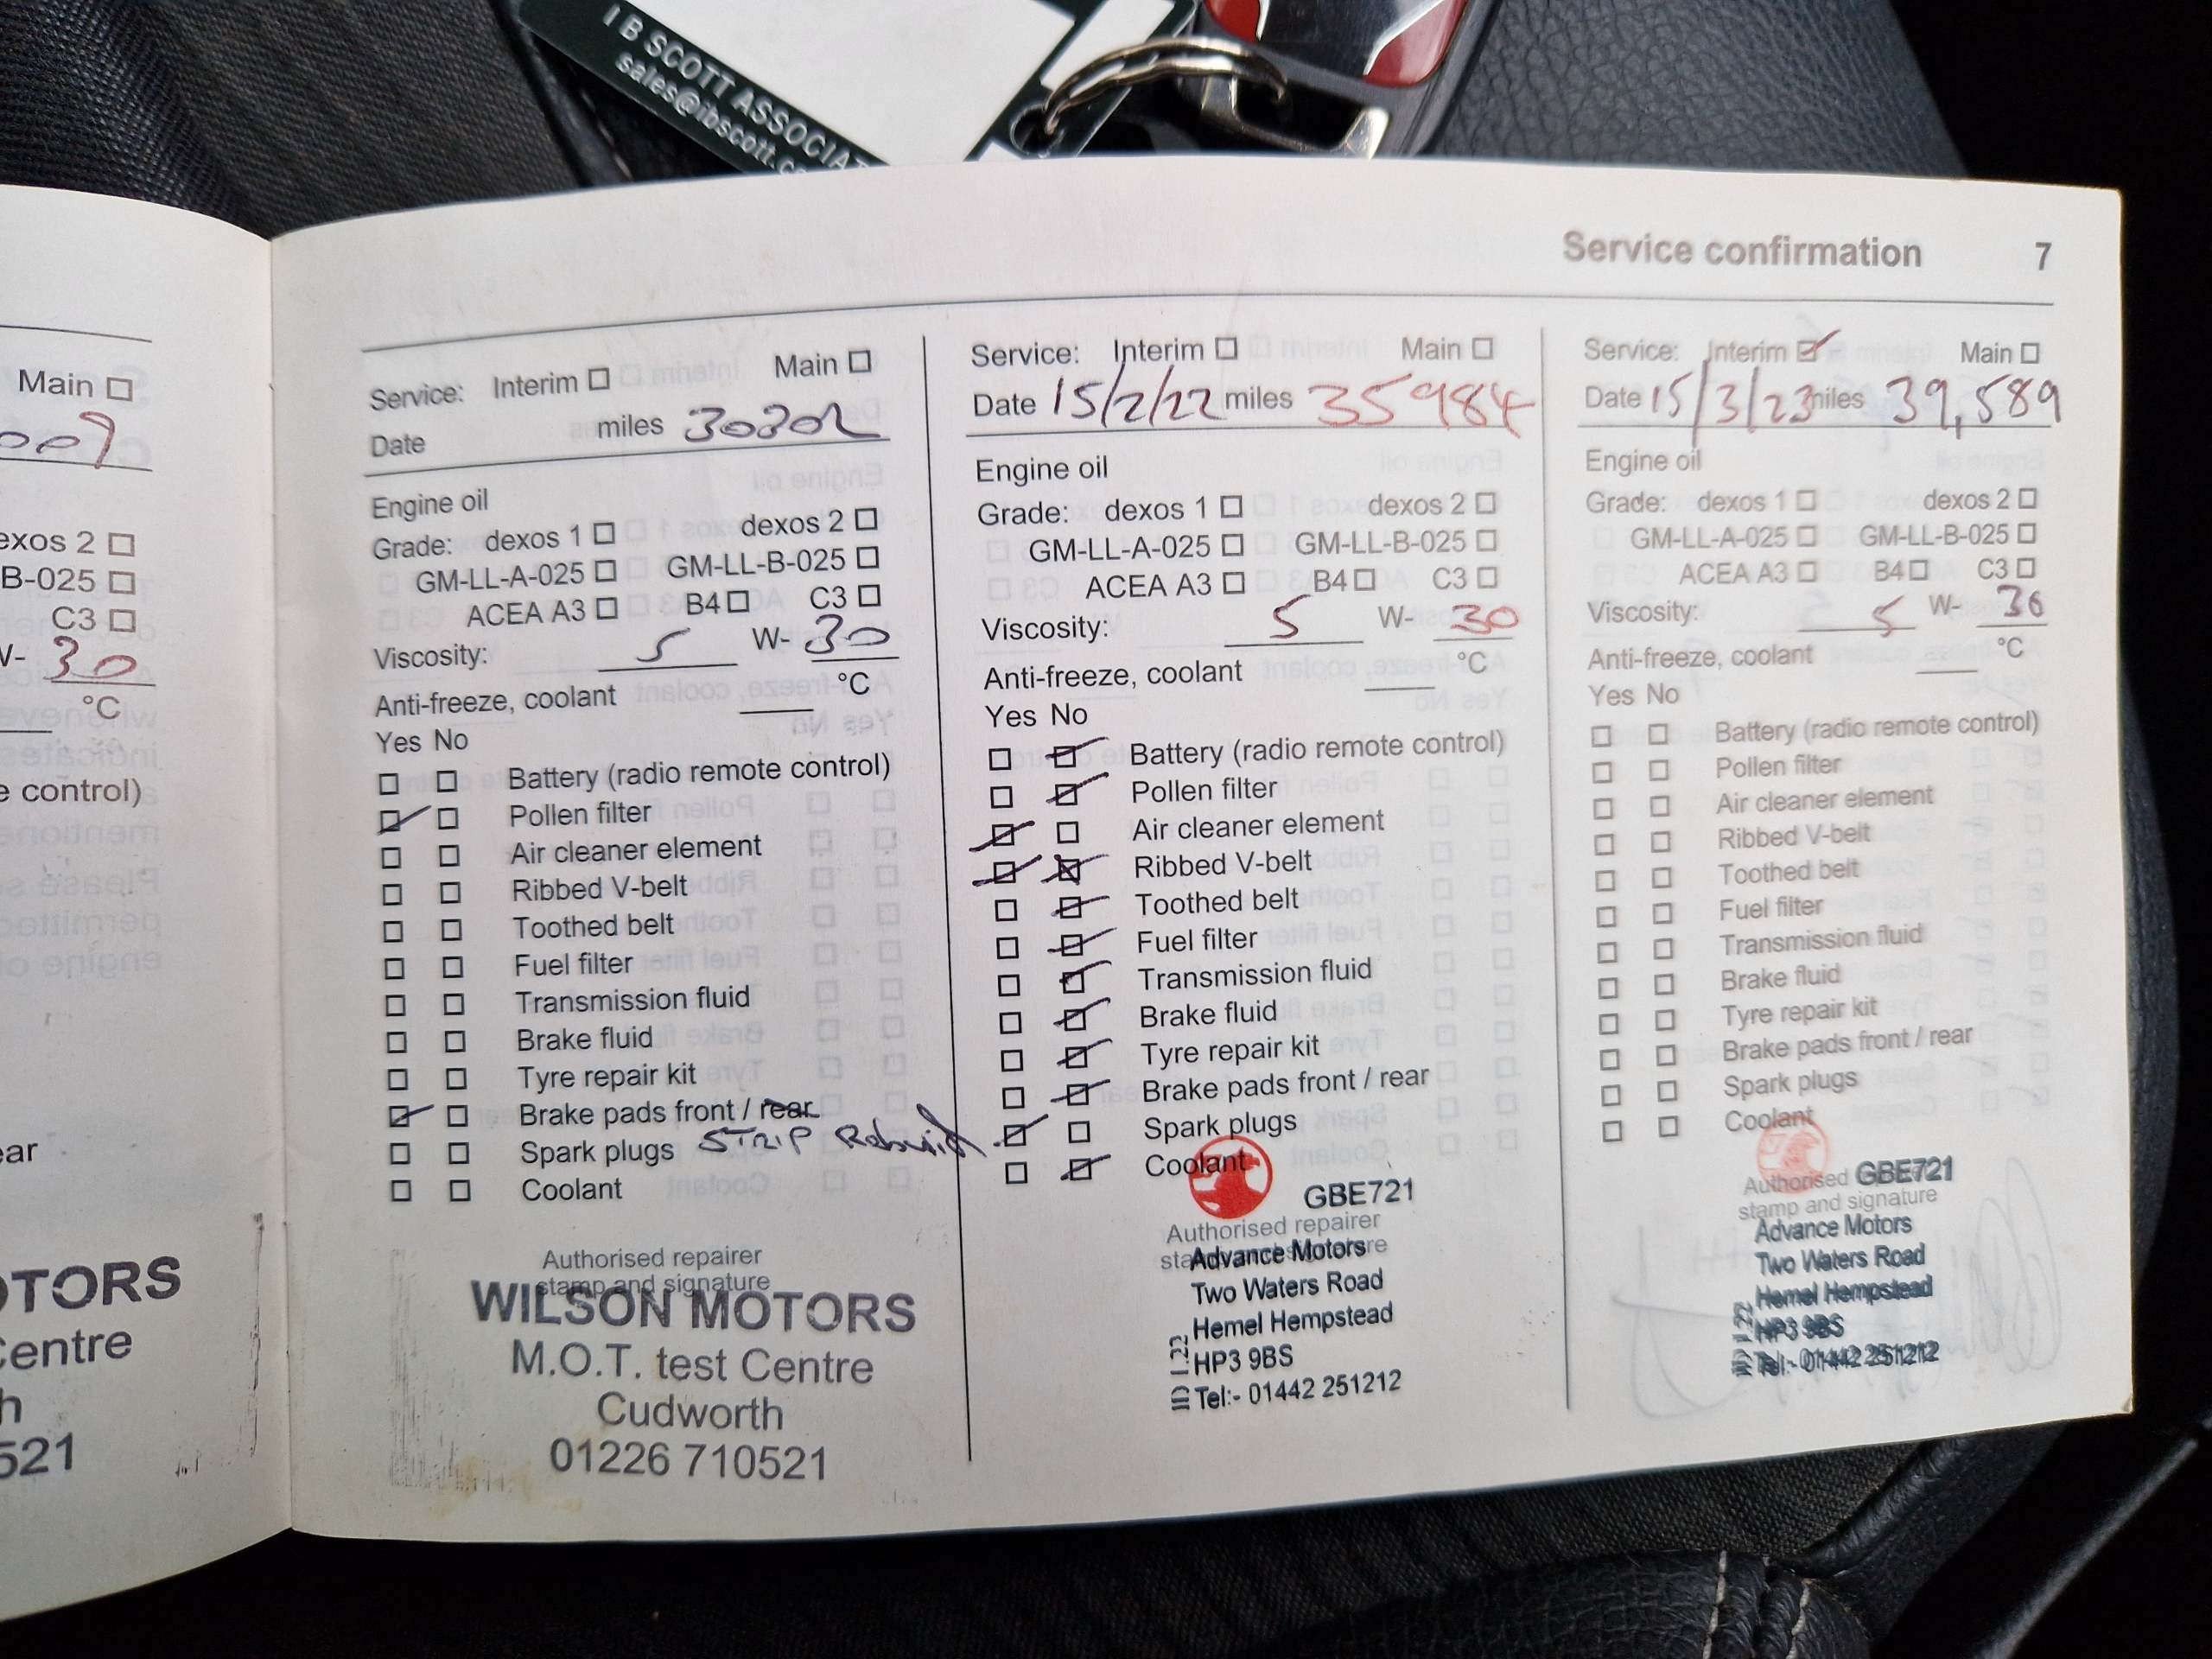 I B SCOTT ASSOCIAT
sales@ibscott.c
Service confirmation 7
Main
009
exos 2
B-025
C3
W- 30
°C
e control)
ear
OTORS
Centre
h
521
Service: Interim Main
Date miles 30302
Engine oil
Grade: dexos 1 dexos 2
GM-LL-A-025 GM-LL-B-025
ACEA A3 B4 C3
Viscosity: 5 W- 30
Anti-freeze, coolant °C
Yes No
Battery (radio remote control)
Pollen filter
Air cleaner element
Ribbed V-belt
Toothed belt
Fuel filter
Transmission fluid
Brake fluid
Tyre repair kit
Brake pads front / rear
Spark plugs STRIP Rebuild
Coolant
Authorised repairer
stamp and signature
WILSON MOTORS
M.O.T. test Centre
Cudworth
01226 710521
Service: Interim Main
Date 15/2/22 miles 35984
Engine oil
Grade: dexos 1 dexos 2
GM-LL-A-025 GM-LL-B-025
ACEA A3 B4 C3
Viscosity: 5 W- 30
Anti-freeze, coolant °C
Yes No
Battery (radio remote control)
Pollen filter
Air cleaner element
Ribbed V-belt
Toothed belt
Fuel filter
Transmission fluid
Brake fluid
Tyre repair kit
Brake pads front / rear
Spark plugs
Coolant
GBE721
Authorised repairer
Advance Motors
Two Waters Road
Hemel Hempstead
HP3 9BS
Tel:- 01442 251212
Service: Interim Main
Date 15/3/23 miles 39,589
Engine oil
Grade: dexos 1 dexos 2
GM-LL-A-025 GM-LL-B-025
ACEA A3 B4 C3
Viscosity: 5 W- 30
Anti-freeze, coolant °C
Yes No
Battery (radio remote control)
Pollen filter
Air cleaner element
Ribbed V-belt
Toothed belt
Fuel filter
Transmission fluid
Brake fluid
Tyre repair kit
Brake pads front / rear
Spark plugs
Coolant
Authorised GBE721
stamp and signature
Advance Motors
Two Waters Road
Hemel Hempstead
HP3 9BS
Tel:- 01442 251212